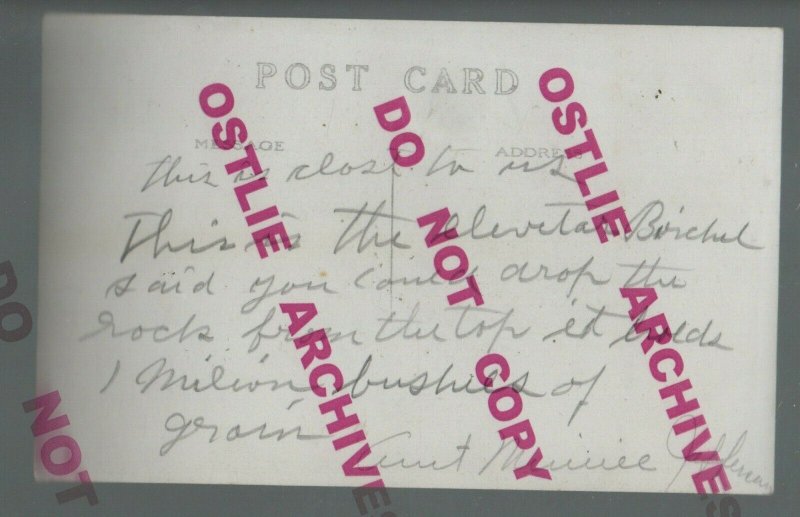 POST CARD
MESSAGE
ADDRESS
this is close to us
This is the elevetar Birchel
said you could drop the
rock from the top it holds
1 Milion bushels of
grain
Aunt Minnie
OSTLIE ARCHIVES
DO NOT COPY
OSTLIE ARCHIVES
DO NOT